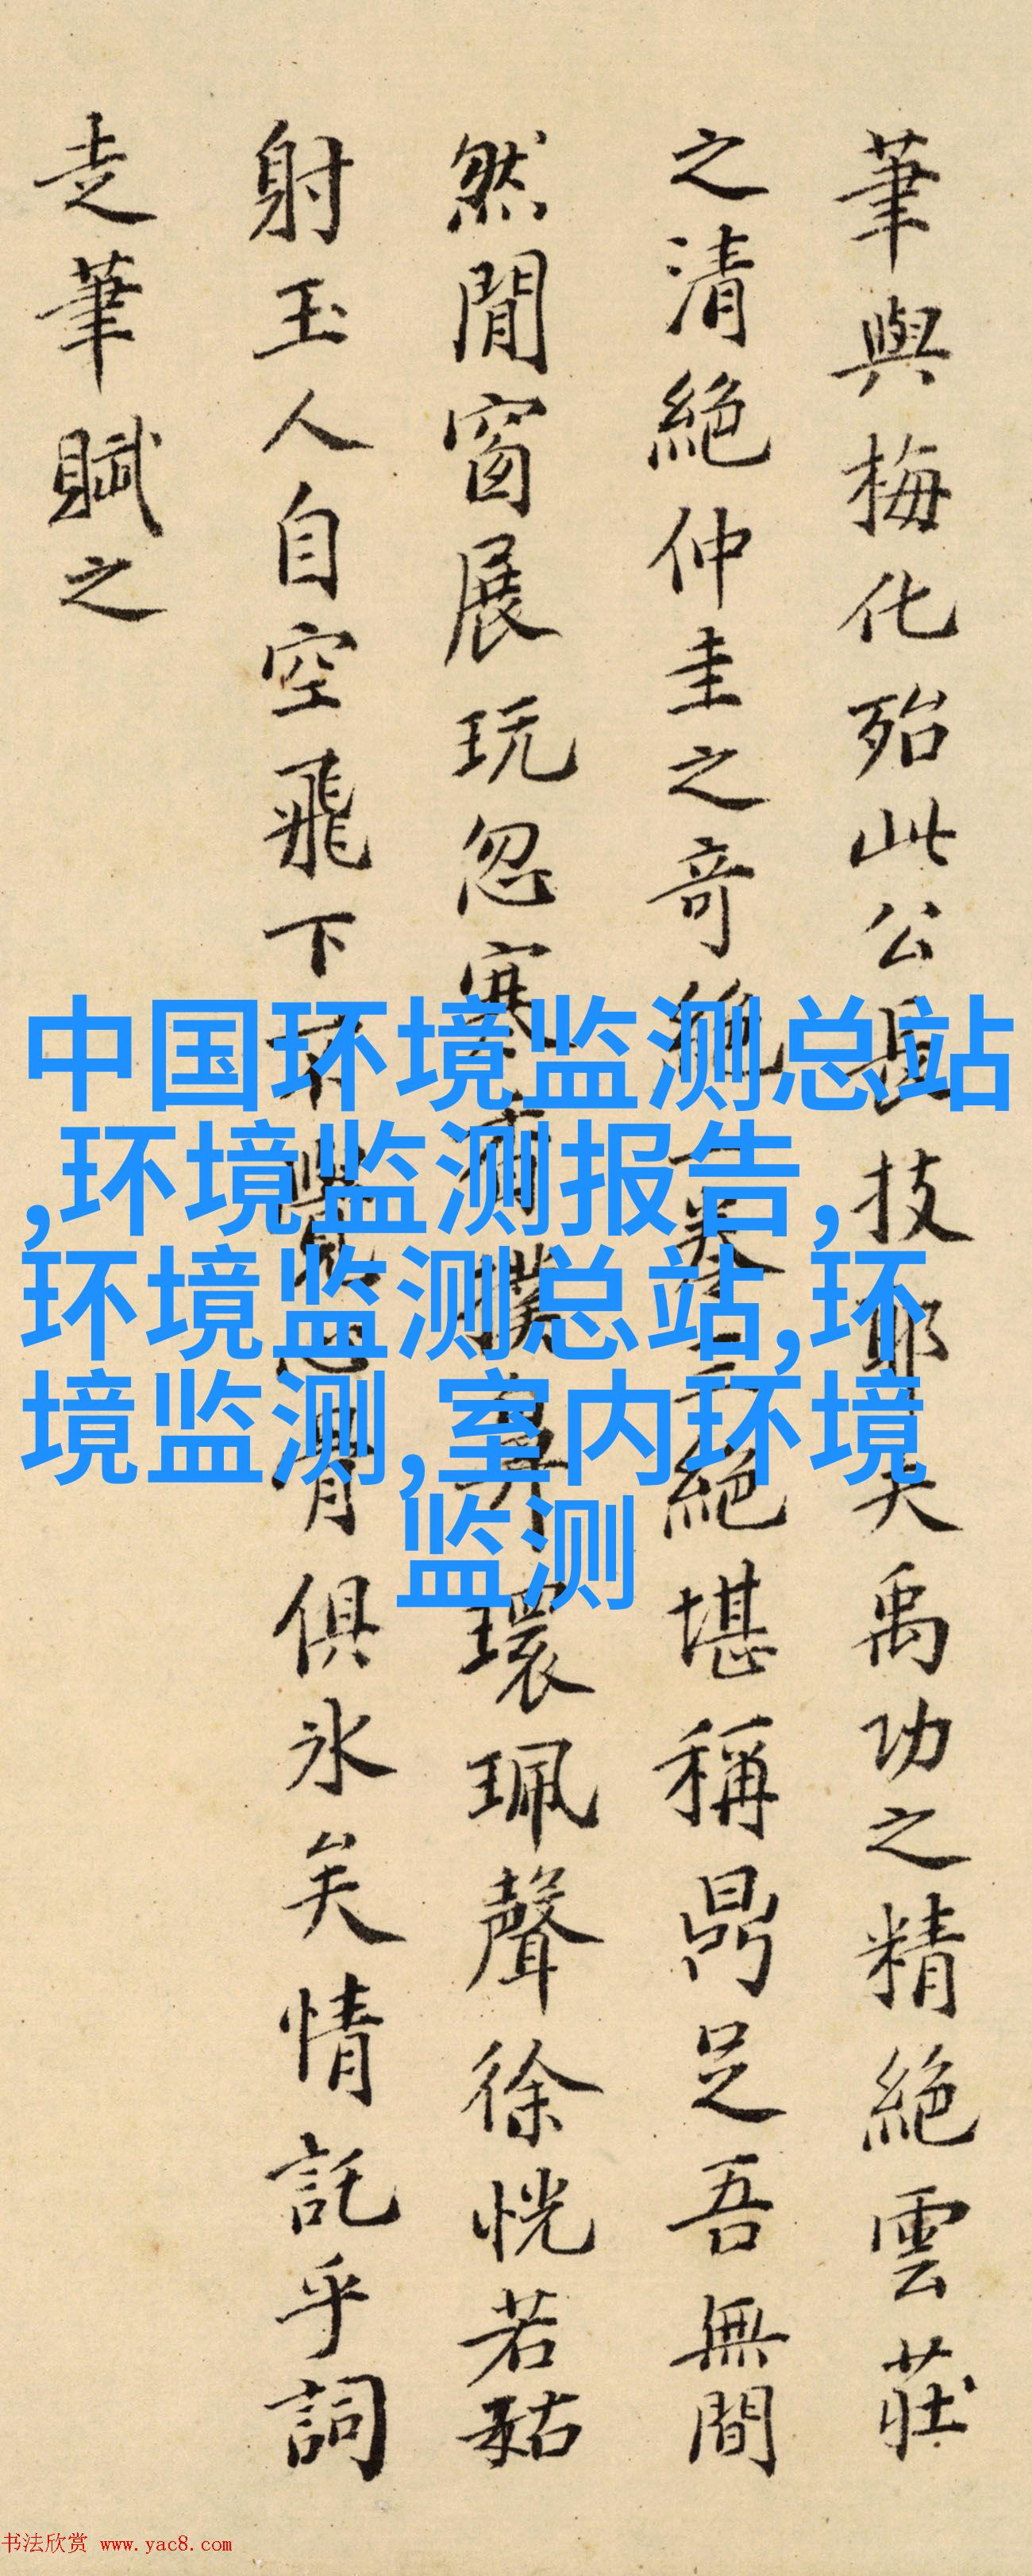 筆與梅化殆此公長技耶大禹功之精絕雲莊
之清絕仲圭之奇絕一卷三絕堪稱鼎足吾無間
然閒窗展玩忽寒香撲鼻環珮聲徐恍若藐姑
射玉人自空飛下不覺心骨俱冰矣情託乎詞
走筆賦之
中国环境监测总站
,环境监测报告,
环境监测总站,环
境监测,室内环境
监测
书法欣赏 www.yac8.com